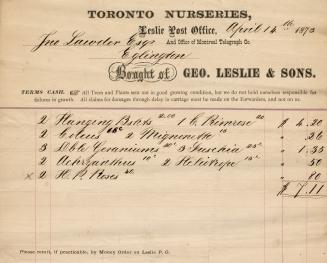 TORONTO NURSERIES,
Leslie Post Office, April 14th 1873
Jno Lawder Esqr And Office of Montreal Telegraph Co.
Eglington
Bought of GEO. LESLIE & SONS.
TERMS CASH. All Trees and Plants sent out in good growing condition, but we do not hold ourselves responsible for
failures in growth. All claims for damages through delay in carriage must be made on the Forwarders, and not on us.
2 Hanging Bskts 2.00 1 C. Primrose 20 $ 4.20
2 Coleus 15c 2 Mignonette 10 " 26
3 Dble Geraniums 20c 3 Fuschia 25c " 1.35
2 Achyranthus 10c 2 Heliotrope 15c " 50
x 2 H. P. Roses 40 " 80
$ 7.11
Please remit, if practicable, by Money Order on Leslie P. O.